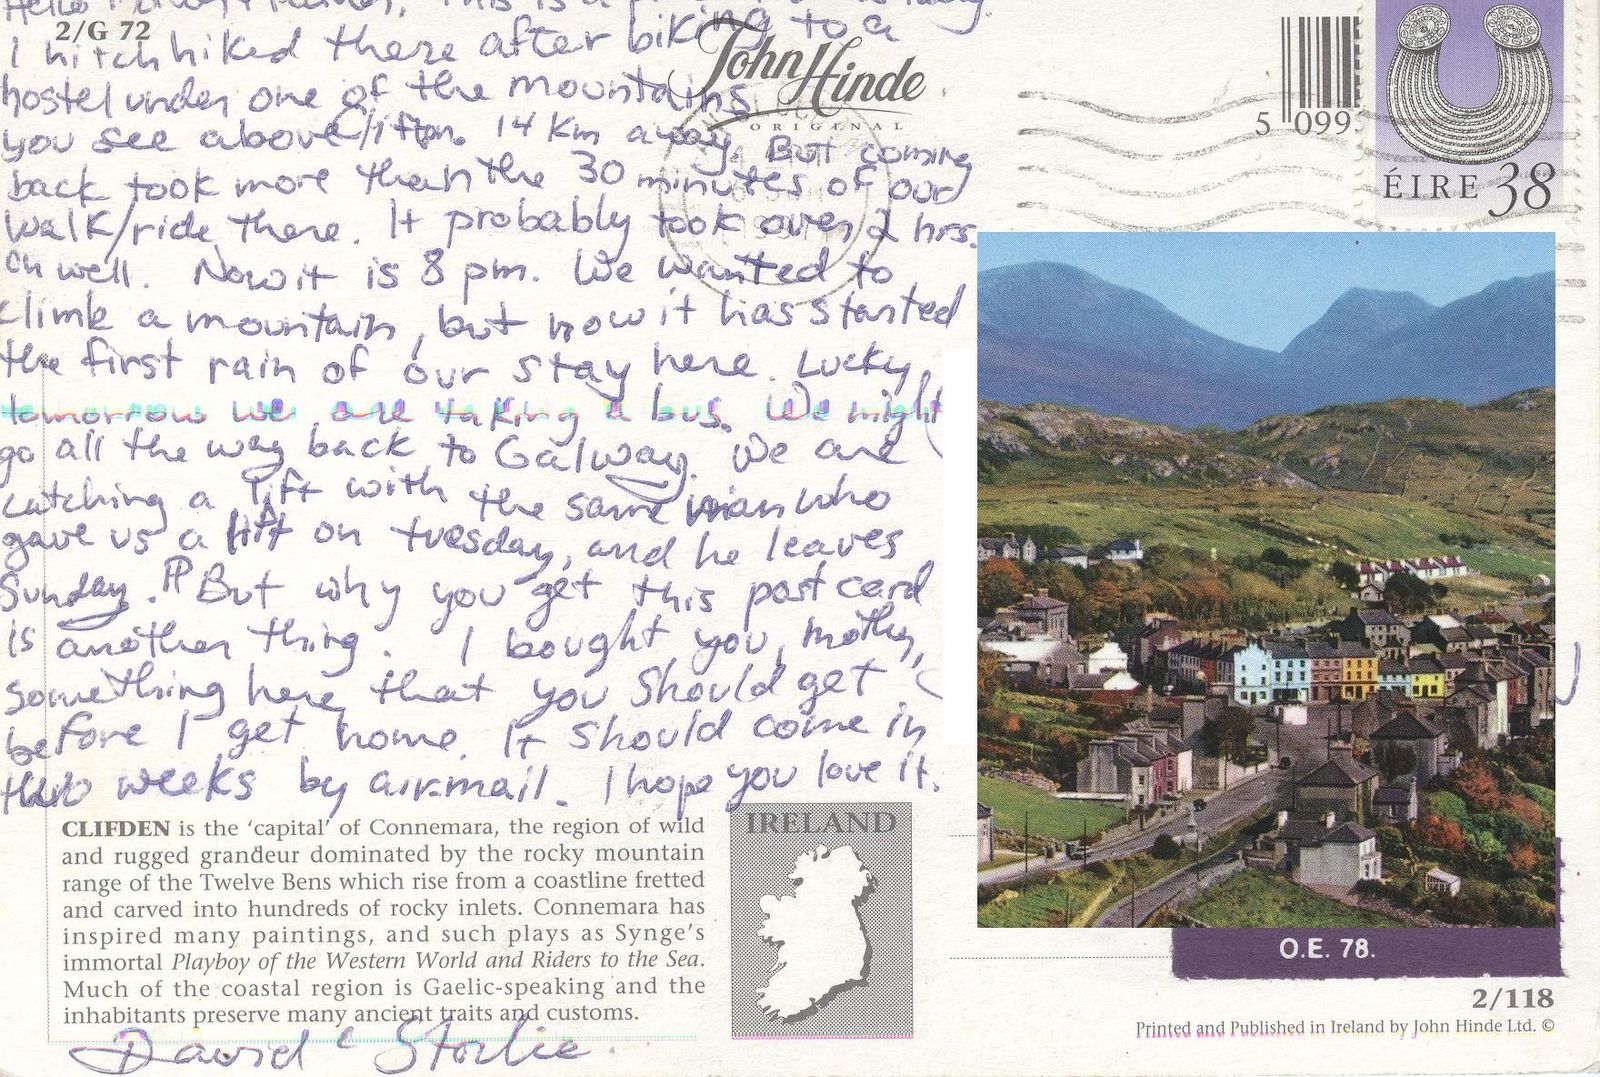 2/G 72
Hello
This is a
I hitch hiked there after biking to a
hostel under one of the mountains
you see above/ 14 Km away. But coming
back took more than the 30 minutes of our
walk/ride there. It probably took over 2 hrs.
Oh well. Now it is 8 pm. We wanted to
climb a mountain, but now it has started
the first rain of our stay here. Lucky,
tomorrow we are taking a bus. We might
go all the way back to Galway. We are
catching a lift with the same man who
gave us a lift on tuesday, and he leaves
Sunday. But why you get this post card
is another thing. I bought you, mother,
something here that you should get
before I get home. It should come in
two weeks by airmail. I hope you love it.
John Hinde
ORIGINAL
5 099
ÉIRE 38
CLIFDEN is the 'capital' of Connemara, the region of wild
and rugged grandeur dominated by the rocky mountain
range of the Twelve Bens which rise from a coastline fretted
and carved into hundreds of rocky inlets. Connemara has
inspired many paintings, and such plays as Synge's
immortal Playboy of the Western World and Riders to the Sea.
Much of the coastal region is Gaelic-speaking and the
inhabitants preserve many ancient traits and customs.
David C Storlie.
IRELAND
O.E. 78.
2/118
Printed and Published in Ireland by John Hinde Ltd. ©